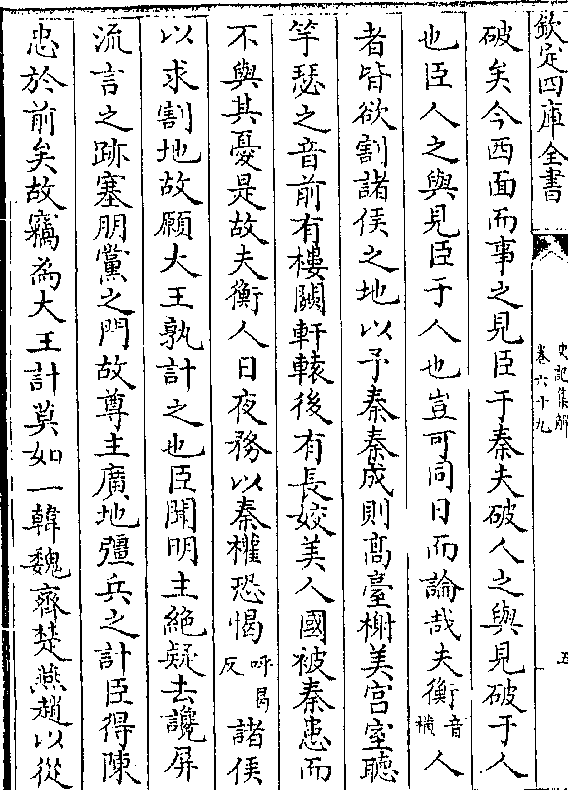 欽定四庫全書
史記集解
卷六十九
五
破矣今西面而事之見臣于秦夫破人之與見破于人
也臣人之與見臣于人也豈可同日而論哉夫衡音橫人
者皆欲割諸侯之地以予秦秦成則髙臺榭美宫室聽
竽瑟之音前有樓闕軒轅後有長姣美人國被秦患而
不與其憂是故夫衡人日夜務以秦權恐愒呼曷反諸侯
以求割地故願大王孰計之也臣聞明主絶疑去讒屏
流言之跡塞朋黨之門故尊主廣地彊兵之計臣得陳
忠於前矣故竊為大王計莫如一韓魏齊楚燕趙以從